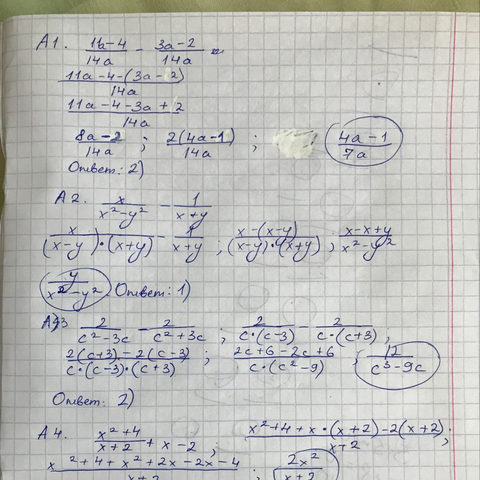 A1. (11a-4)/14a - (3a-2)/14a =
(11a-4-(3a-2))/14a
(11a-4-3a+2)/14a
(8a-2)/14a ; 2(4a-1)/14a ; (4a-1)/7a
Ответ: 2)
A2. x/(x²-y²) - 1/(x+y)
x/((x-y)·(x+y)) - 1/(x+y) ; (x-(x-y))/((x-y)·(x+y)) ; (x-x+y)/(x²-y²)
y/(x²-y²). Ответ: 1)
A3 2/(c²-3c) - 2/(c²+3c) ; 2/(c·(c-3)) - 2/(c·(c+3)) ;
(2(c+3)-2(c-3))/(c·(c-3)·(c+3)) ; (2c+6-2c+6)/(c·(c²-9)) ; 12/(c³-9c)
Ответ: 2)
A4. (x²+4)/(x+2) + x - 2 ; (x²+4+x·(x+2)-2(x+2))/(x+2) ;
(x²+4+x²+2x-2x-4)/(x+2) ; 2x²/(x+2)